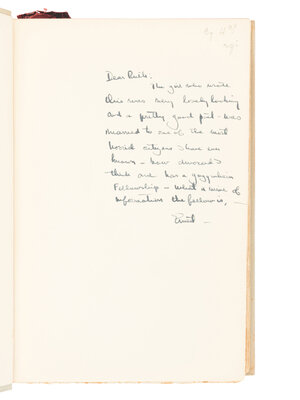 Dear Ruth:
The girl who wrote
this was very lovely looking
and a pretty good poet – was
married to one of the most
horrid citizens I have ever
known – now divorced I
think and has a Guggenheim
Fellowship – What a mine of
information the fellow is. –
Ernest –